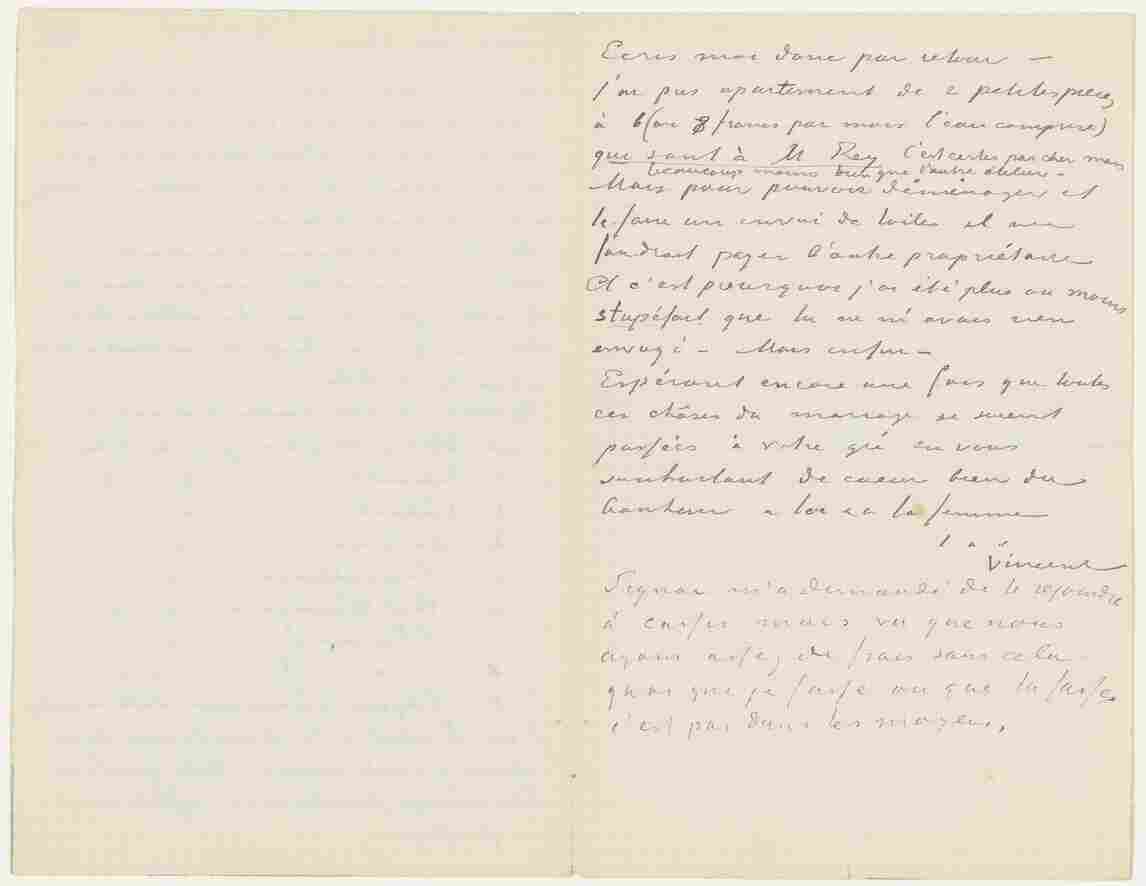 Ecris moi donc par retour —
j'ai pris apartement de 2 petites pieces
à 6 (ou 8 francs par mois l'eau comprise)
qui sont à M Rey c'est certes pas cher mais
beaucoup moins bien que l'autre atelier –
Mais pour pouvoir déménager et
te faire un envoi de toiles il me
faudrait payer l'autre propriétaire
Et c'est pourquoi j'ai été plus ou moins
stupéfait que tu ne m'avais rien
envoyé – Mais enfin –
Espérant encore une fois que toutes
ces choses du mariage se soient
passées à votre gré en vous
souhaitant de coeur bien du
bonheur a toi et a ta femme
t. à t.
Vincent
Signac m'a demandé de le rejoindre
à Cassis mais vu que nous
ayons assez de frais sans cela
quoi que je fasse ou que tu fasses
c'est pas dans les moyens,